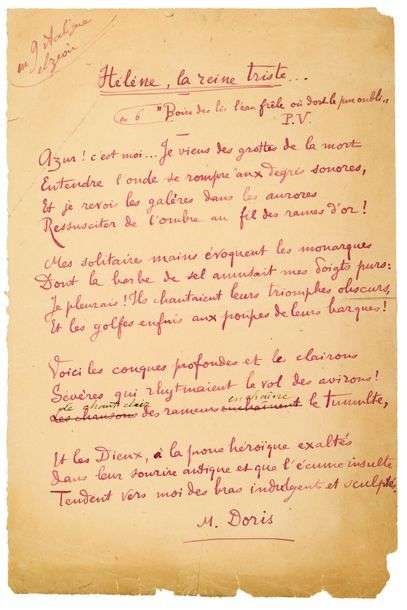 en 9 italique
elzevir
Hélène, la reine triste...
en 6 "Boire des lis l'eau frêle où dort le pur oubli"
P.V.
Azur! c'est moi... Je viens des grottes de la mort
Entendre l'onde se rompre aux degrés sonores,
Et je revois les galères dans les aurores
Ressusciter de l'ombre au fil des rames d'or!
Mes solitaires mains évoquent les monarques
Dont la barbe de sel amusait mes doigts purs:
Je pleurais! Ils chantaient leurs triomphes obscurs,
Et les golfes enfuis aux poupes de leurs barques!
Voici les conques profondes et le clairons
Sevères qui rhytmaient le vol des avirons!
le chant clair enchaîne
Les chansons des rameurs enchainent le tumulte,
Et les Dieux, à la proue héroïque exaltés
Dans leur sourire antique et que l'écume insulte
Tendent vers moi des bras indulgent et sculptés.
M. Doris